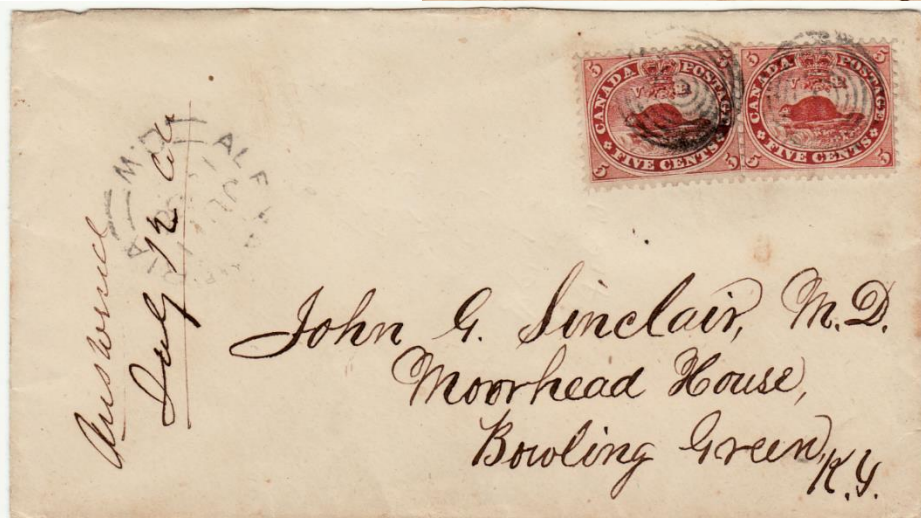 5 CANADA POSTAGE 5
5 FIVE CENTS 5
5 CANADA POSTAGE 5
5 FIVE CENTS 5
Answered
July 12
John G. Sinclair, M.D.
Moorhead House,
Bowling Green,
K.Y.